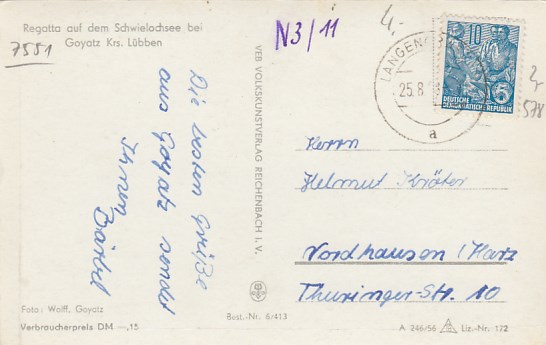 Regatta auf dem Schwielochsee bei
Goyatz Krs. Lübben
7581
N3/11
4,-
Die besten Grüße
aus Goyatz sendet
Ihnen
Bärbel
VEB VOLKSKUNSTVERLAG REICHENBACH I. V.
LANGEN
25.8
a
10
5
DEUTSCHE
DEMOKRATISCHE REPUBLIK
578
Herrn
Helmut Kröter
Nordhausen/Harz
Thüringer-Str. 10
Foto: Wolff, Goyatz
Verbraucherpreis DM —,15
Best.-Nr. 6/413
A 246/56
Liz.-Nr. 172